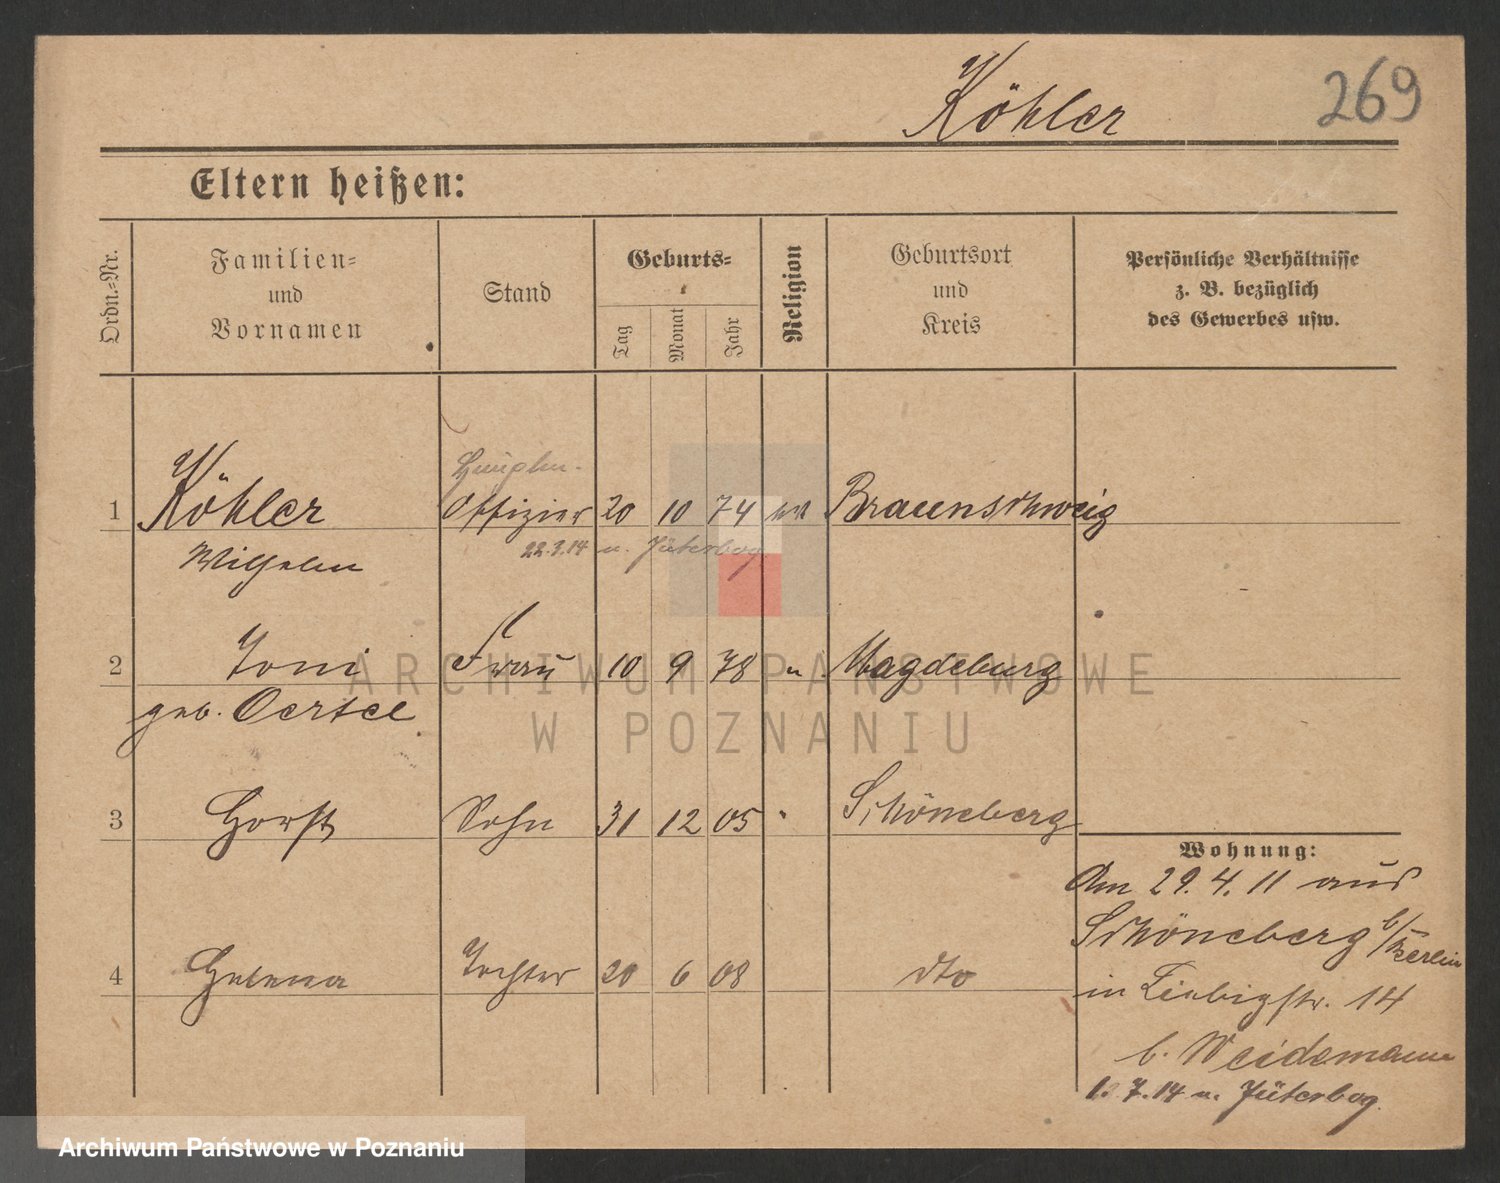 Köhler
269
Eltern heißen:
Ordn.-Nr.
Familien-
und
Vornamen
Stand
Geburts-
Tag
Monat
Jahr
Religion
Geburtsort
und
Kreis
Persönliche Verhältnisse
z. B. bezüglich
des Gewerbes usw.
Hauptm.-
1 Köhler Offizier 20 10 74 Braunschweig
Wilhelm 22.7.14 n. Jüterbog
2 Toni Frau 10 9 78 " Magdeburg
geb. Oertel
3 Horst Sohn 31 12 05 " Schöneberg
4 Helena Tochter 20 6 08 dto
Wohnung:
Am 29.4.11 aus
Schöneberg b/Berlin
in Liebigstr. 14
b. Weidemann
1.7.14 n. Jüterbog.
ARCHIWUM PAŃSTWOWE
W POZNANIU
Archiwum Państwowe w Poznaniu